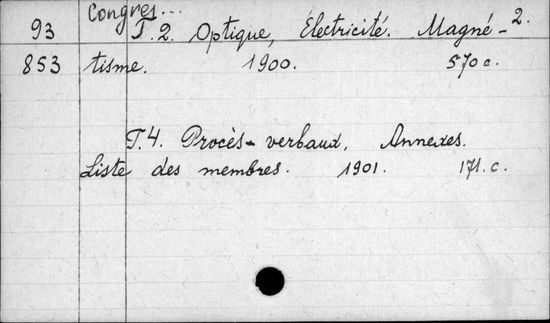 Congres... 2.
93 T. 2. Optique, Électricité. Magné-
853 tisme. 1900. 570 c.
T. 4. Procès-verbaux, Annexes.
Liste des membres. 1901. 171. c.